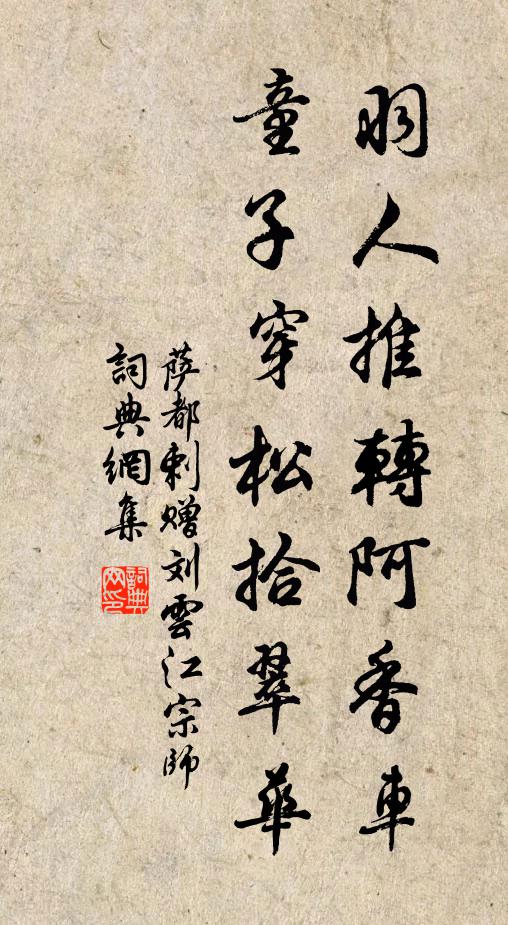 羽人推轉阿香車
童子穿松拾翠華
薩都剌赠刘雲江宗師
詞典網集
詞典網印